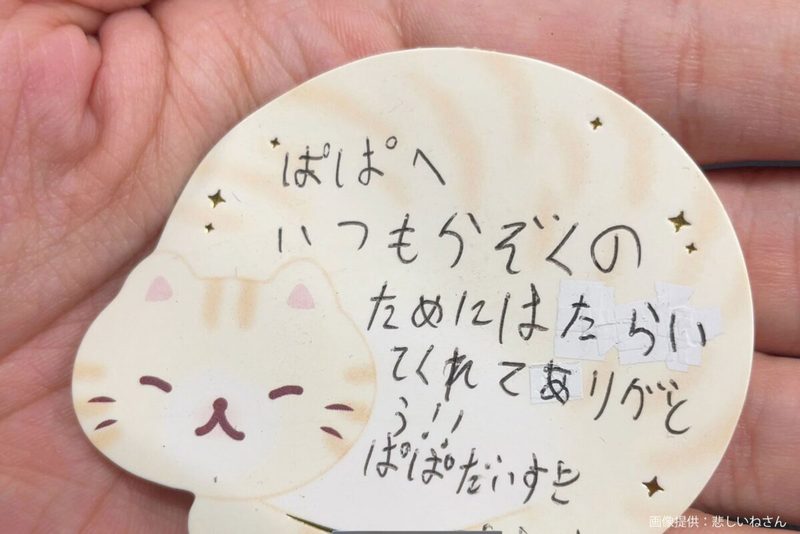 ぱぱへ
いつもかぞくの
ためにはたらい
てくれてありがと
う!!
ぱぱだいすき
画像提供：悲しいねさん